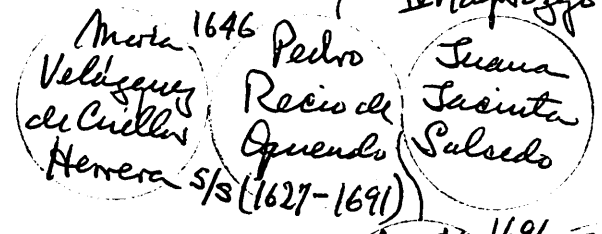 Maria
Velázquez
de Cuellar
Herrera
1646
Pedro
Recio de
Oquendo
s/s (1627-1691)
Juana
Jacinta
Salsedo